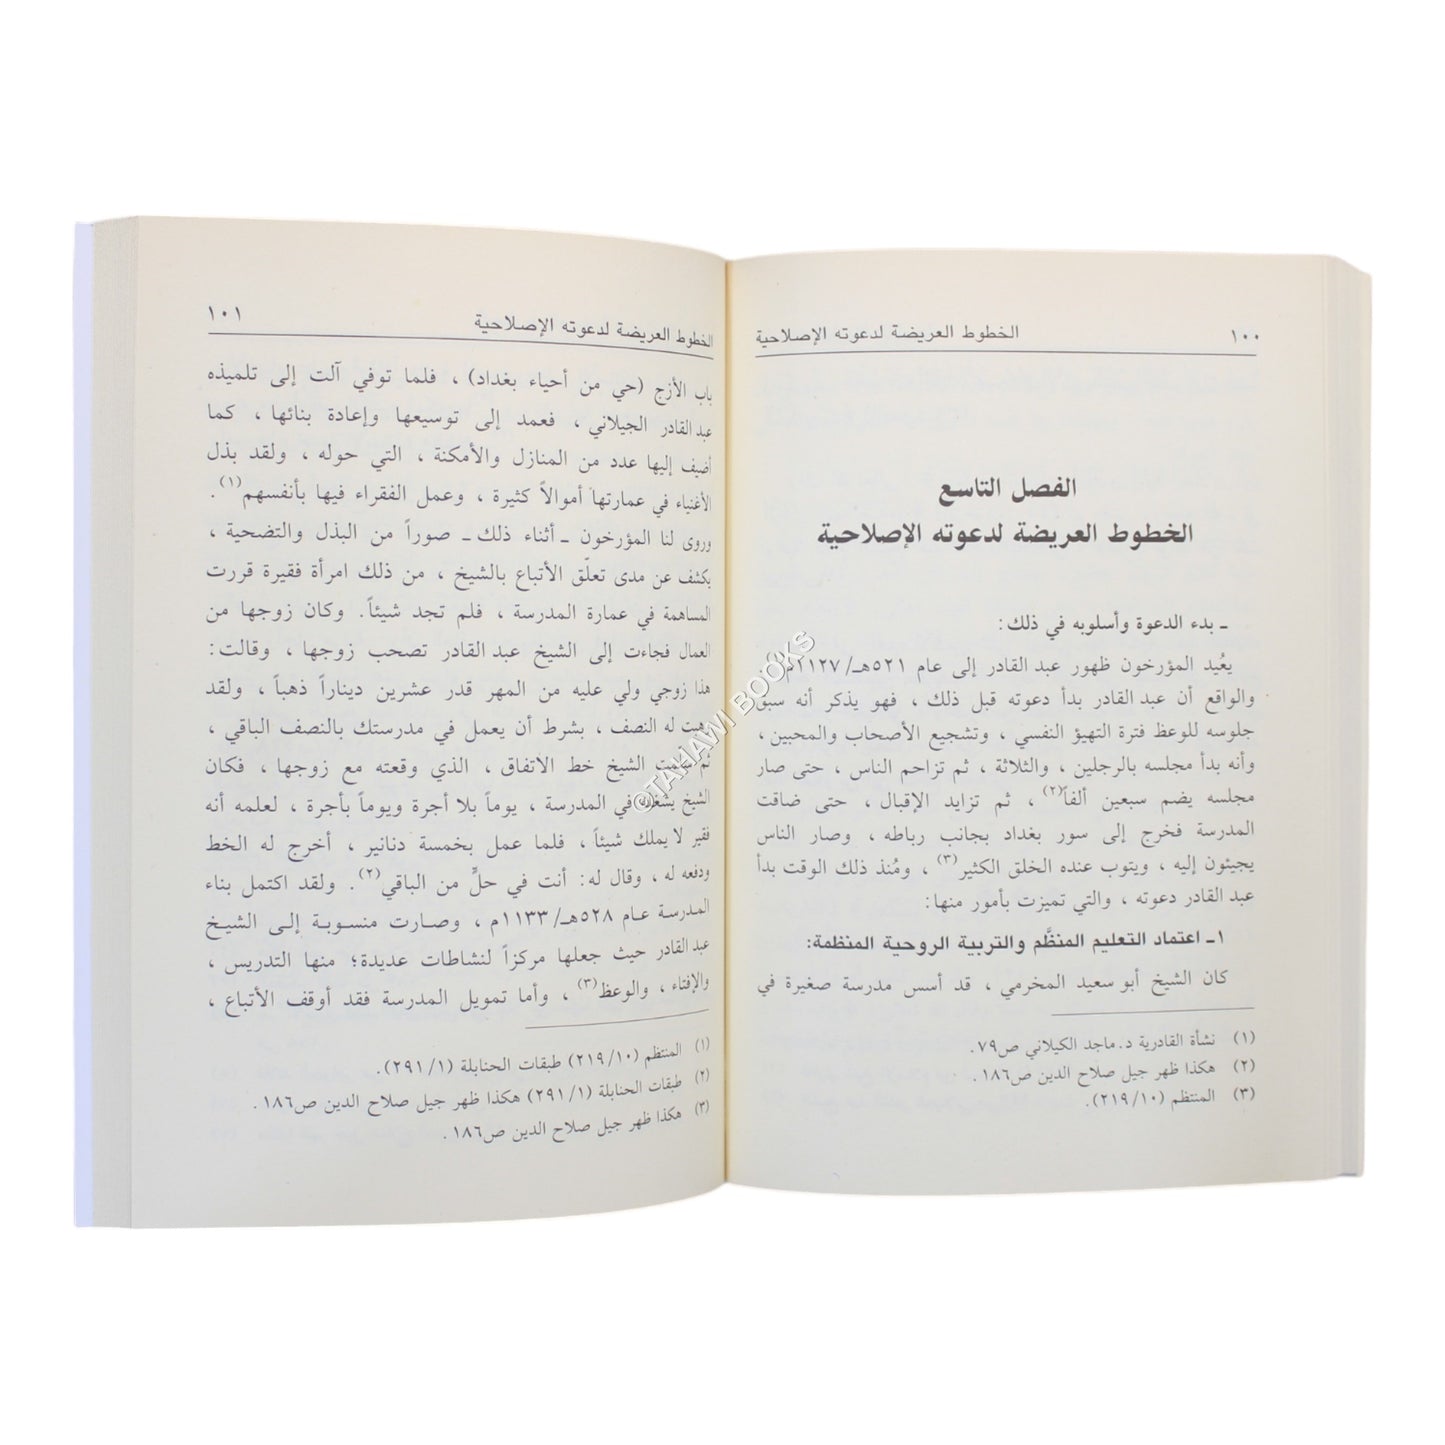 ١٠٠ الخطوط العريضة لدعوته الإصلاحية
الفصل التاسع
الخطوط العريضة لدعوته الإصلاحية
ـ بدء الدعوة وأسلوبه في ذلك:
يعُيد المؤرخون ظهور عبد القادر إلى عام ٥٢١هـ/١١٢٧م
والواقع أن عبد القادر بدأ دعوته قبل ذلك ، فهو يذكر أنه سبق
جلوسه للوعظ فترة التهيؤ النفسي ، وتشجيع الأصحاب والمحبين ،
وأنه بدأ مجلسه بالرجلين ، والثلاثة ، ثم تزاحم الناس ، حتى صار
مجلسه يضم سبعين ألفاً(٢) ، ثم تزايد الإقبال ، حتى ضاقت
المدرسة فخرج إلى سور بغداد بجانب رباطه ، وصار الناس
يجيئون إليه ، ويتوب عنده الخلق الكثير(٣) ، ومُنذ ذلك الوقت بدأ
عبد القادر دعوته ، والتي تميزت بأمور منها:
١ـ اعتماد التعليم المنظَّم والتربية الروحية المنظمة:
كان الشيخ أبو سعيد المخرمي ، قد أسس مدرسة صغيرة في
(١) نشأة القادرية د. ماجد الكيلاني ص٧٩.
(٢) هكذا ظهر جيل صلاح الدين ص١٨٦.
(٣) المنتظم (٢١٩/١٠).
الخطوط العريضة لدعوته الإصلاحية ١٠١
باب الأزج (حي من أحياء بغداد) ، فلما توفي آلت إلى تلميذه
عبد القادر الجيلاني ، فعمد إلى توسيعها وإعادة بنائها ، كما
أضيف إليها عدد من المنازل والأمكنة ، التي حوله ، ولقد بذل
الأغنياء في عمارتها أموالاً كثيرة ، وعمل الفقراء فيها بأنفسهم(١).
وروى لنا المؤرخون ـ أثناء ذلك ـ صوراً من البذل والتضحية ،
يكشف عن مدى تعلّق الأتباع بالشيخ ، من ذلك امرأة فقيرة قررت
المساهمة في عمارة المدرسة ، فلم تجد شيئاً. وكان زوجها من
العمال فجاءت إلى الشيخ عبد القادر تصحب زوجها ، وقالت:
هذا زوجي ولي عليه من المهر قدر عشرين ديناراً ذهباً ، ولقد
وهبت له النصف ، بشرط أن يعمل في مدرستك بالنصف الباقي ،
ثم سلمت الشيخ خط الاتفاق ، الذي وقعته مع زوجها ، فكان
الشيخ يشغله في المدرسة ، يوماً بلا أجرة ويوماً بأجرة ، لعلمه أنه
فقير لا يملك شيئاً ، فلما عمل بخمسة دنانير ، أخرج له الخط
ودفعه له ، وقال له: أنت في حلٍّ من الباقي(٢). ولقد اكتمل بناء
المدرسة عام ٥٢٨هـ/١١٣٣م ، وصارت منسوبة إلى الشيخ
عبد القادر حيث جعلها مركزاً لنشاطات عديدة؛ منها التدريس ،
والإفتاء ، والوعظ(٣) ، وأما تمويل المدرسة فقد أوقف الأتباع ،
(١) المنتظم (٢١٩/١٠) طبقات الحنابلة (٢٩١/١).
(٢) طبقات الحنابلة (٢٩١/١) هكذا ظهر جيل صلاح الدين ص١٨٦.
(٣) هكذا ظهر جيل صلاح الدين ص١٨٦.
©TAHAWI BOOKS